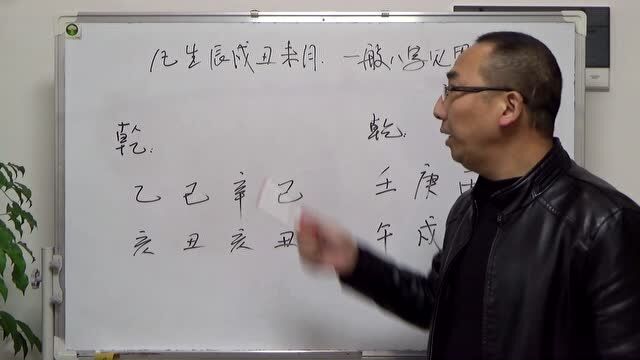 凡生辰戌丑未月. 一般八字见
乾: 乾:
乙 己 辛 己 壬 庚
亥 丑 亥 丑 午 戌